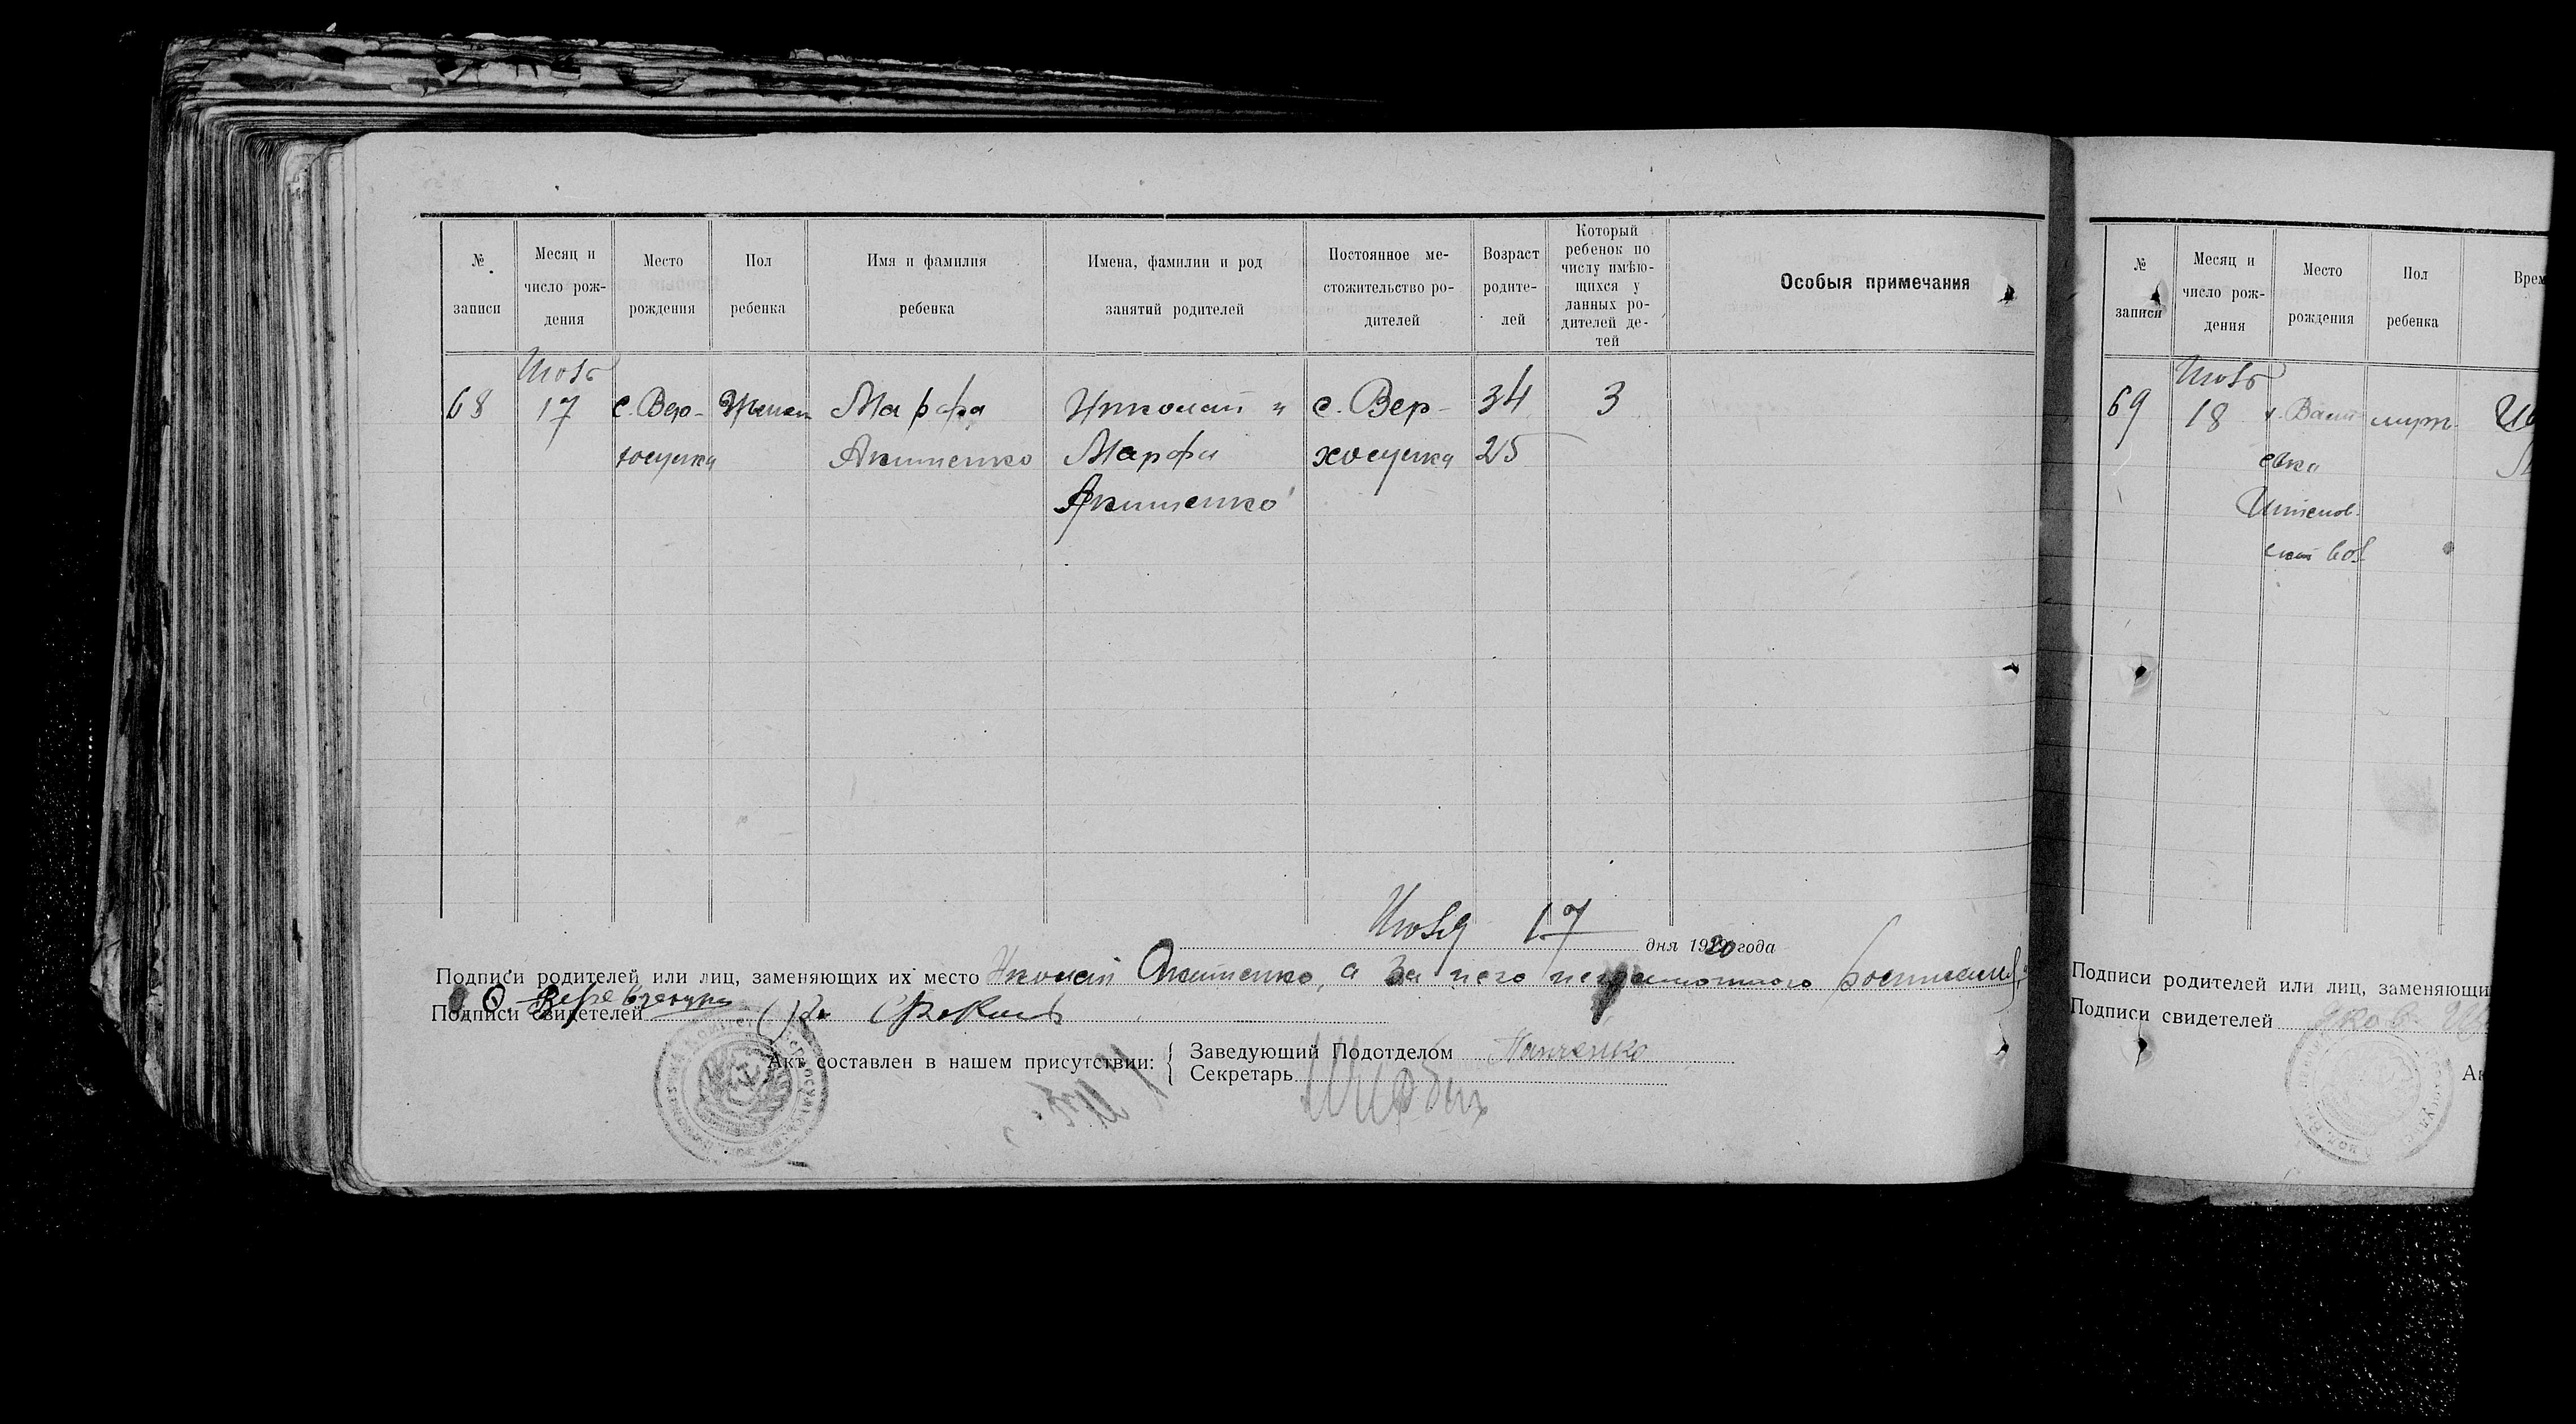 № записи
Месяц и число рождения
Место рождения
Пол ребенка
Имя и фамилия ребенка
Имена, фамилии и род занятий родителей
Постоянное местожительство родителей
Возраст родителей
Который ребенок по числу имѣющихся у данных родителей детей
Особыя примечания
Июль
68 17 с. Вер- Женск Марфа Николай и с. Вер- 34 3
хосулка Акименко Марфа хосулка 25
Акименко
Июля 17 дня 1920 года
Подписи родителей или лиц, заменяющих их место Николай Акименко, а за него неграмотного
Подписи свидетелей
Акт составлен в нашем присутствии:
Заведующий Подотделом Панченко
Секретарь
№ записи
Месяц и число рождения
Место рождения
Пол ребенка
Врем
Июль
69 18 муж.
Подписи родителей или лиц, заменяющи
Подписи свидетелей Яков
Ак